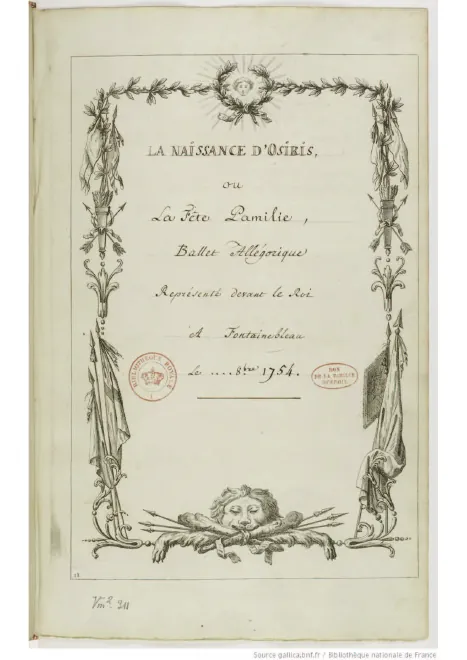 LA NAISSANCE D'OSIRIS,
ou
La Fête Pamilie,
Ballet Allégorique
Représenté devant le Roi
A Fontainebleau
Le .... 8bre 1754.
BIBLIOTHEQUE ROYALE
DON
DE LA FAMILLE
DECROIX
13
Vm2. 311
Source gallica.bnf.fr / Bibliothèque nationale de France